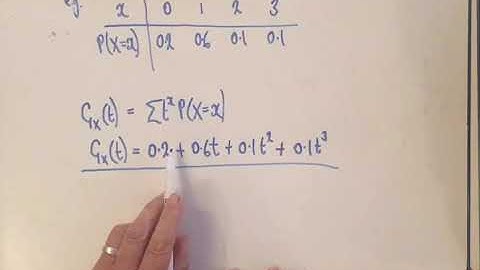 eg. x 0 1 2 3
P(X=x) 0.2 0.6 0.1 0.1
Gx(t) = Σt^x P(X=x)
Gx(t) = 0.2 + 0.6t + 0.1t² + 0.1t³